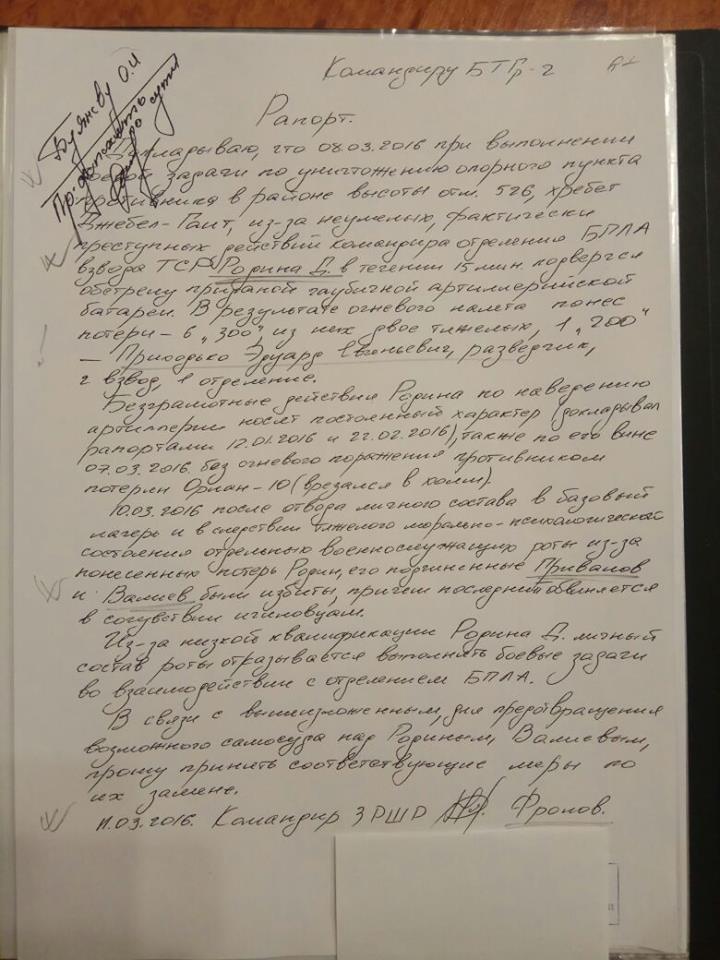 Командиру БТГр-2
Буянову О.И
Рапорт.
Докладываю, что 08.03.2016 при выполнении
боевой задачи по уничтожению опорного пункта
противника в районе высоты отм. 526, хребет
Джебел-Гаит, из-за неумелых, фактически
преступных действий командира отделения БПЛА
взвода ТСР Родина Д. в течении 15 мин. подвергся
обстрелу приданой гаубичной артиллерийской
батареи. В результате огневого налета понес
потери – 6 „300", из них двое тяжелых, 1 „200"
– Приходько Эдуард Евгеньевич, разведчик,
2 взвод, 1 отделение.
Безграмотные действия Родина по наведению
артиллерии носят постоянный характер (докладывал
рапортами 12.01.2016 и 22.02.2016), также по его вине
07.03.2016 без огневого поражения противником
потерян Орлан-10 (врезался в холм).
10.03.2016 после отвода личного состава в базовый
лагерь и в следствии тяжелого морально-психологической
состояния отдельных военнослужащих роты из-за
понесенных потерь Родин, его подчиненные Привалов
и Валиев были избиты, причем последний обвиняется
в сочувствии игиловцам.
Из-за низкой квалификации Родина Д. личный
состав роты отказывается выполнять боевые задачи
во взаимодействии с отделением БПЛА.
В связи с вышеизложенным, для предотвращения
возможного самосуда над Родиным, Валиевым,
прошу принять соответствующие меры по
их замене.
11.03.2016. Командир 3 РШР Фролов.